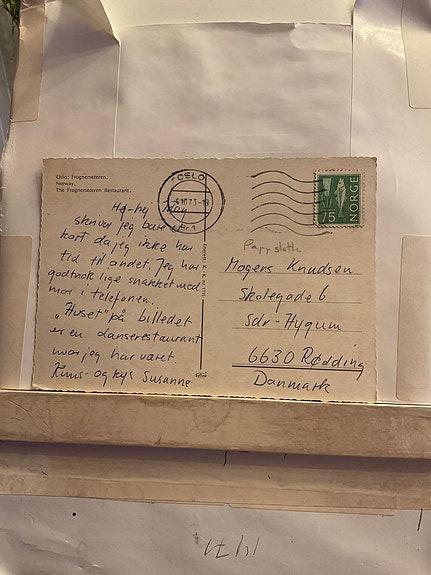 Oslo: Frognerseteren.
Norway.
The Frognerseteren Restaurant.
Hej-hej Idag
skriver jeg bare et
kort da jeg ikke har
tid til andet. Jeg har
godtnok lige snakket med
mor i telefonen.
"Huset" på billedet
er en danserestaurant
hvor jeg har været.
Knus- og kys Susanne
OSLO
4.10.73-19
Br.1
NORGE
75
Mogens Knudsen
Skolegade 6
Sdr-Hygum
6630 Rødding
Danmark